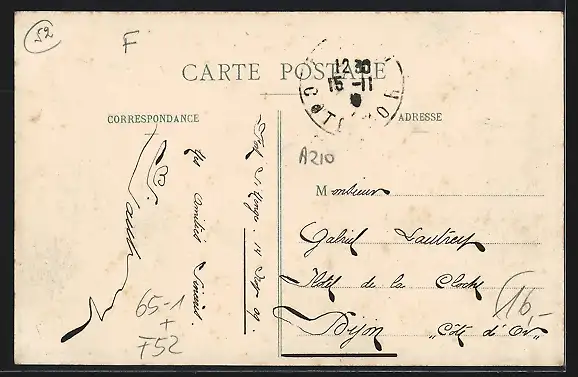 52
F
CARTE POSTALE
12 30
15 -11
COTE D'OR
CORRESPONDANCE
ADRESSE
A210
Monsieur
Gabriel Lautrey
Hotel de la Cloche
16,-
Dijon "Côte d'Or"
Amitiés Sincères.
65-1
+
F52